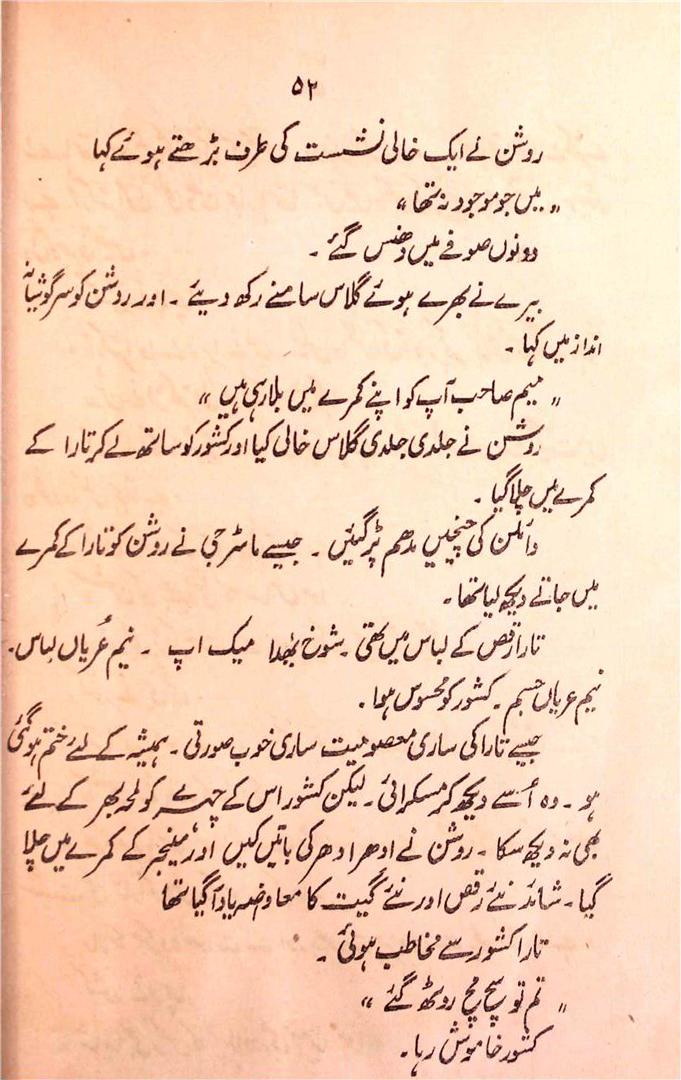 ۵۲
روشن نے ایک خالی نشست کی طرف بڑھتے ہوئے کہا
"میں جو موجود نہ تھا"
دونوں صوفے میں دھنس گئے ۔
بیرے نے بھرے ہوئے گلاس سامنے رکھ دیئے ۔ اور روشن کو سرگوشیانہ
انداز میں کہا ۔
"میم صاحب آپ کو اپنے کمرے میں بلا رہی ہیں"
روشن نے جلدی جلدی گلاس خالی کیا اور کشور کو ساتھ لے کر تارا کے
کمرے میں چلا گیا ۔
وائلن کی چیخیں مدھم پڑ گئیں ۔ جیسے ماسٹر جی نے روشن کو تارا کے کمرے
میں جاتے دیکھ لیا تھا ۔
تارا رقص کے لباس میں تھی ۔ شوخ بھدا میک اپ ۔ نیم عُریاں لباس ۔
نیم عریاں جسم ۔ کشور کو محسوس ہوا ۔
جیسے تارا کی ساری معصومیت ساری خوب صورتی ۔ ہمیشہ کے لئے ختم ہو گئی
ہو ۔ وہ اُسے دیکھ کر مسکرائی ۔ لیکن کشور اس کے چہرے کو لمحہ بھر کے لئے
بھی نہ دیکھ سکا ۔ روشن نے ادھر ادھر کی باتیں کیں اور مینجر کے کمرے میں چلا
گیا ۔ شائد نئے رقص اور نئے گیت کا معاوضہ یاد آ گیا تھا
تارا کشور سے مخاطب ہوئی ۔
"تم تو سچ مچ روٹھ گئے"
کشور خاموش رہا ۔